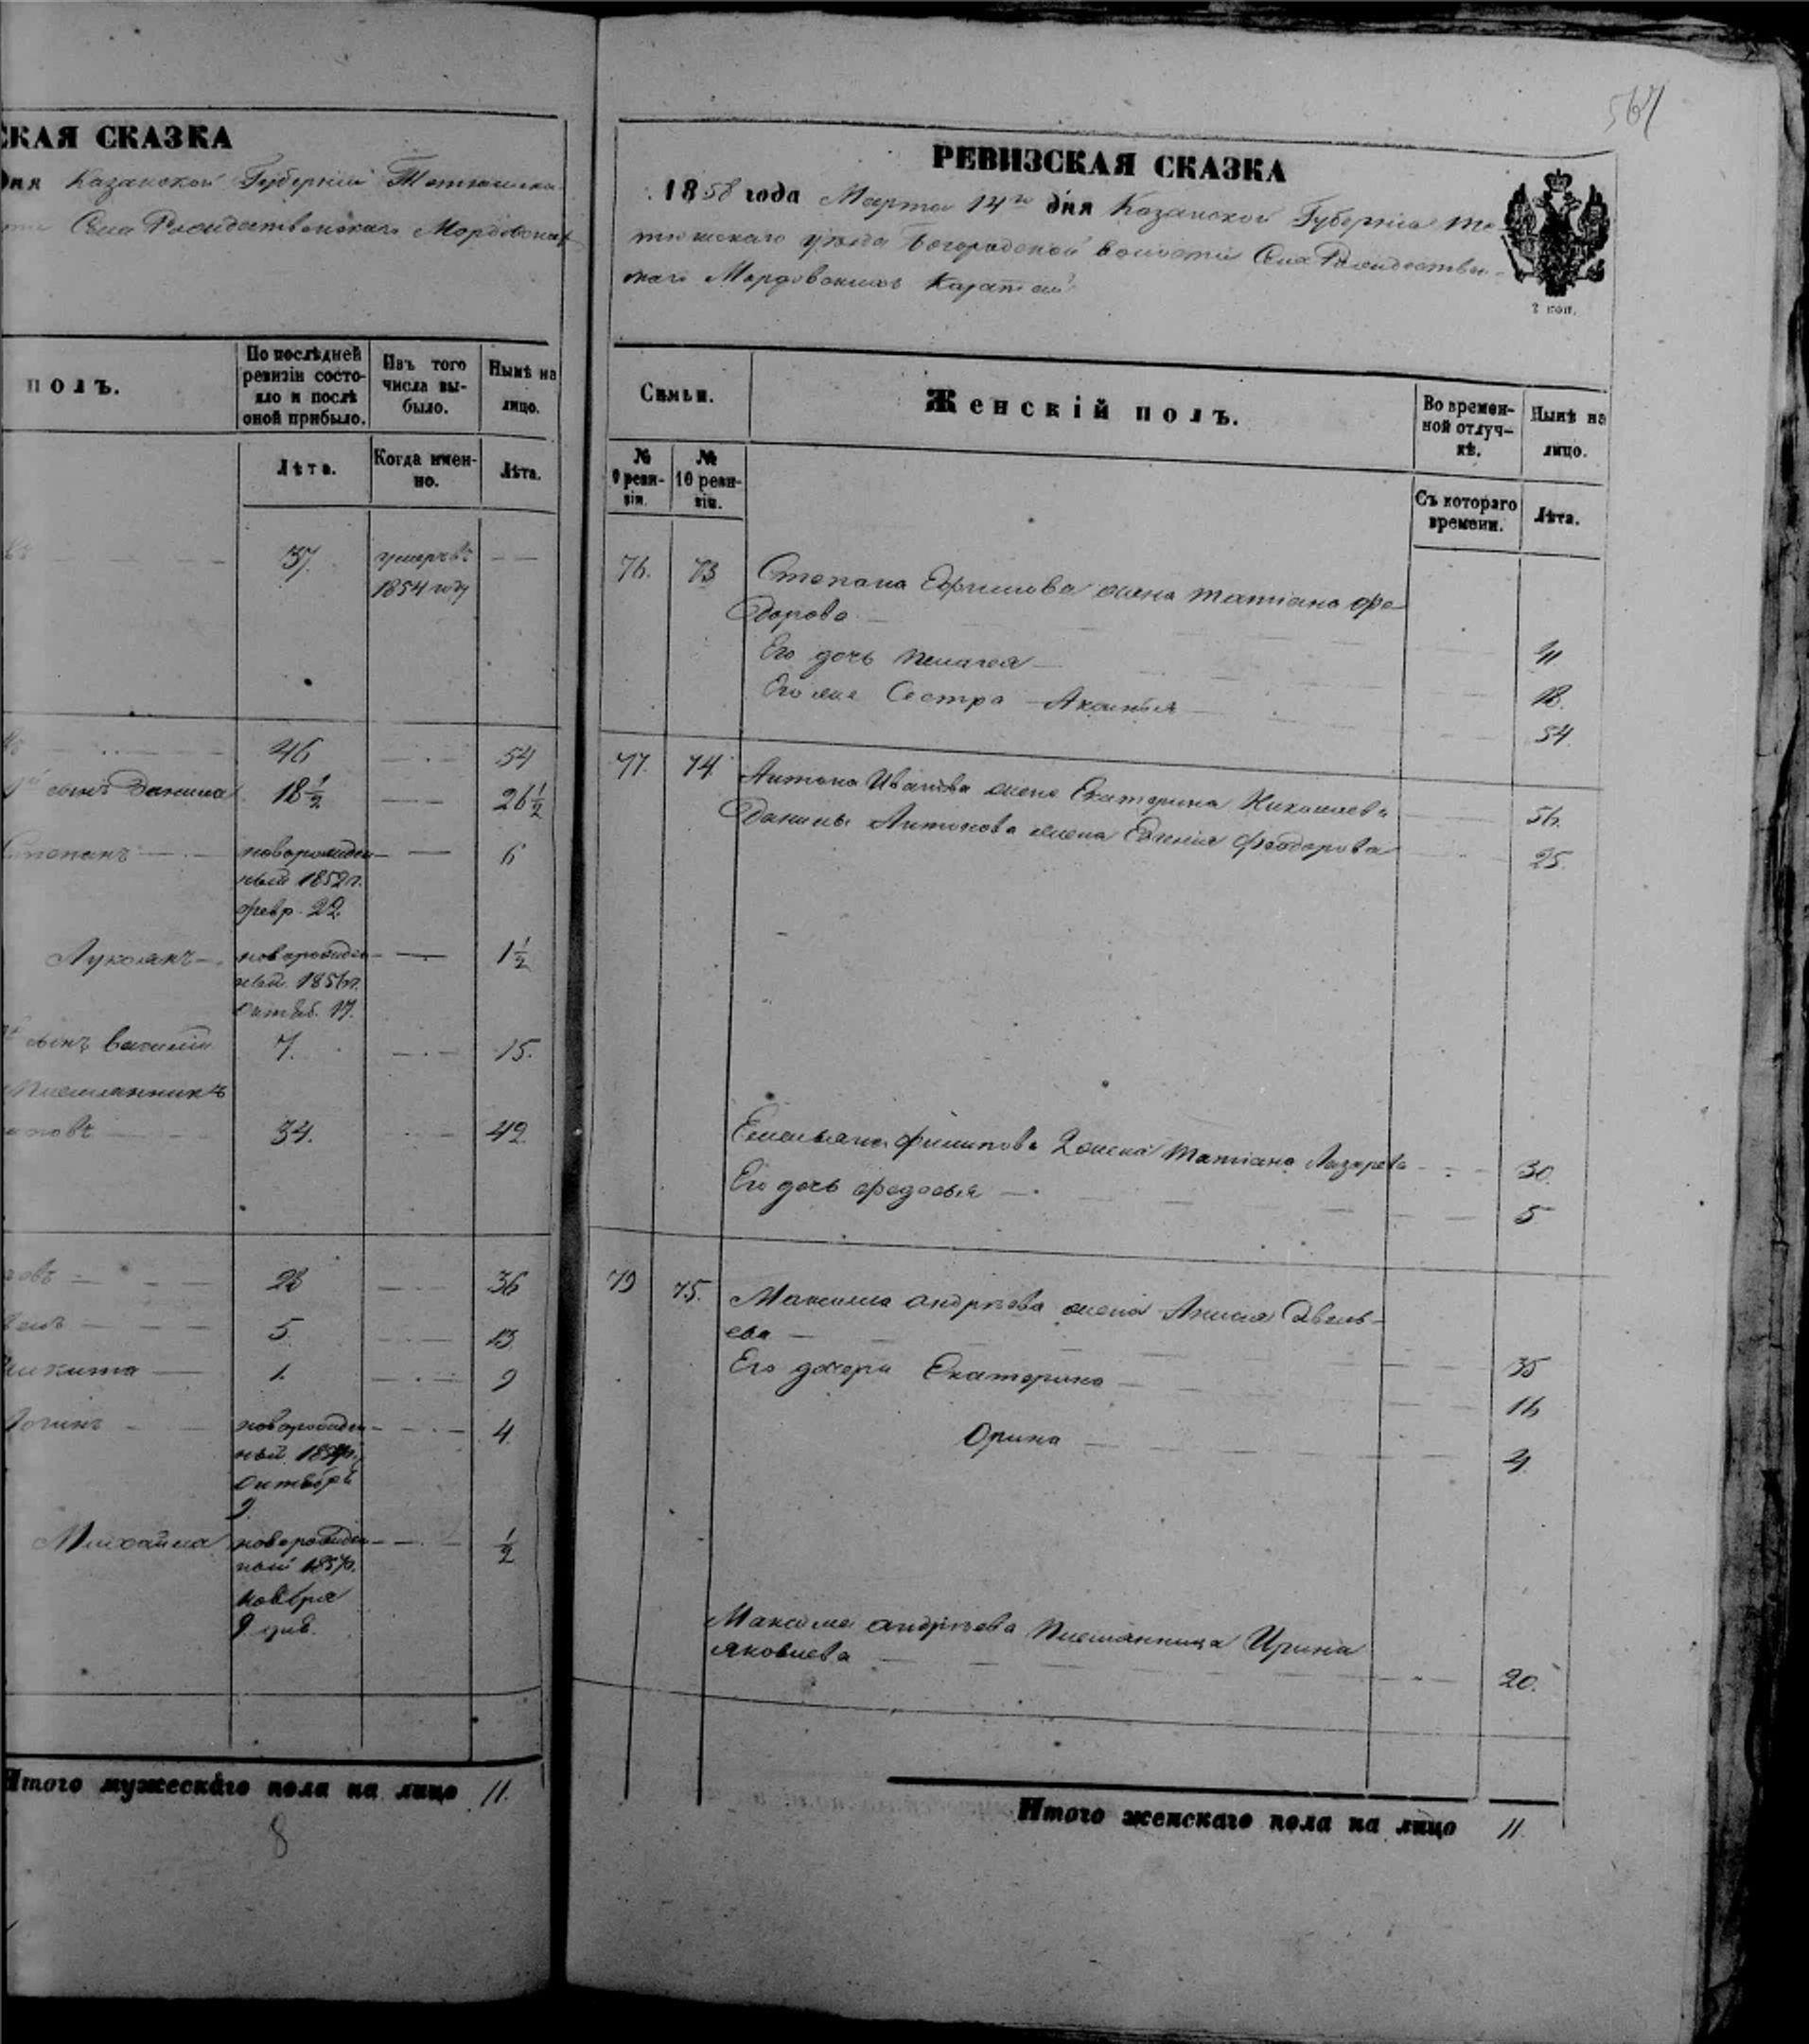 СКАЯ СКАЗКА
дня Казанской Губернии Тетюшска
Села Рождественскаго Мордовских
полъ.
По послѣдней
ревизіи состо-
яло и послѣ
оной прибыло.
Изъ того
числа вы-
было.
Нынѣ на
лицо.
Лѣта.
Когда имен-
но.
Лѣта.
37. умеръ въ — —
1854 году
46 — 54
сынъ Данила 18 1/2 — 26 1/2
Степанъ — новорожден- — 6
ный 1852 г.
февр. 22
Лукоянъ — новорожден- — 1 1/2
ный 1856 г.
Октяб. 17.
сынъ Василій 7. — 15.
Племянникъ
34. — 42
28 — 36
5. — 13
Никита — 1. — 9
Логинъ новорожден- — 4
ный
Октября
9
Михайла новорожден- — 1/2
ный 1857 г.
Ноября
9 дня.
Итого мужескаго пола на лицо 11.
8
567
РЕВИЗСКАЯ СКАЗКА
1858 года Марта 14го дня Казанской Губерніи Те-
тюшскаго уѣзда Богородской волости Села Рождествен-
скаго Мордовскихъ Каратай
2 коп.
Семьи.
Женскій полъ.
Во времен-
ной отлуч-
кѣ.
Нынѣ на
лицо.
№
9 реви-
зіи.
№
10 реви-
зіи.
Съ котораго
времени.
Лѣта.
76. 73 Степана Ефимова жена Татіана Фе-
дорова — 41
Его дочь Пелагея — 18.
Его же Сестра Аксинья — 54.
77. 74. Антона Иванова жена Екатерина Николаева 56.
Данилы Антонова жена Евгенія Федорова 25.
Емельяна Филипова 2 жена Татіана Лазарева 30.
Его дочь Федосья — 5
79 75. Максима Андрѣева жена Анисья Савель-
ева — 35
Его дочери Екатерина — 16
Орина — 4
Максима Андрѣева племянница Ирина
Яковлева — 20.
Итого женскаго пола на лицо 11.